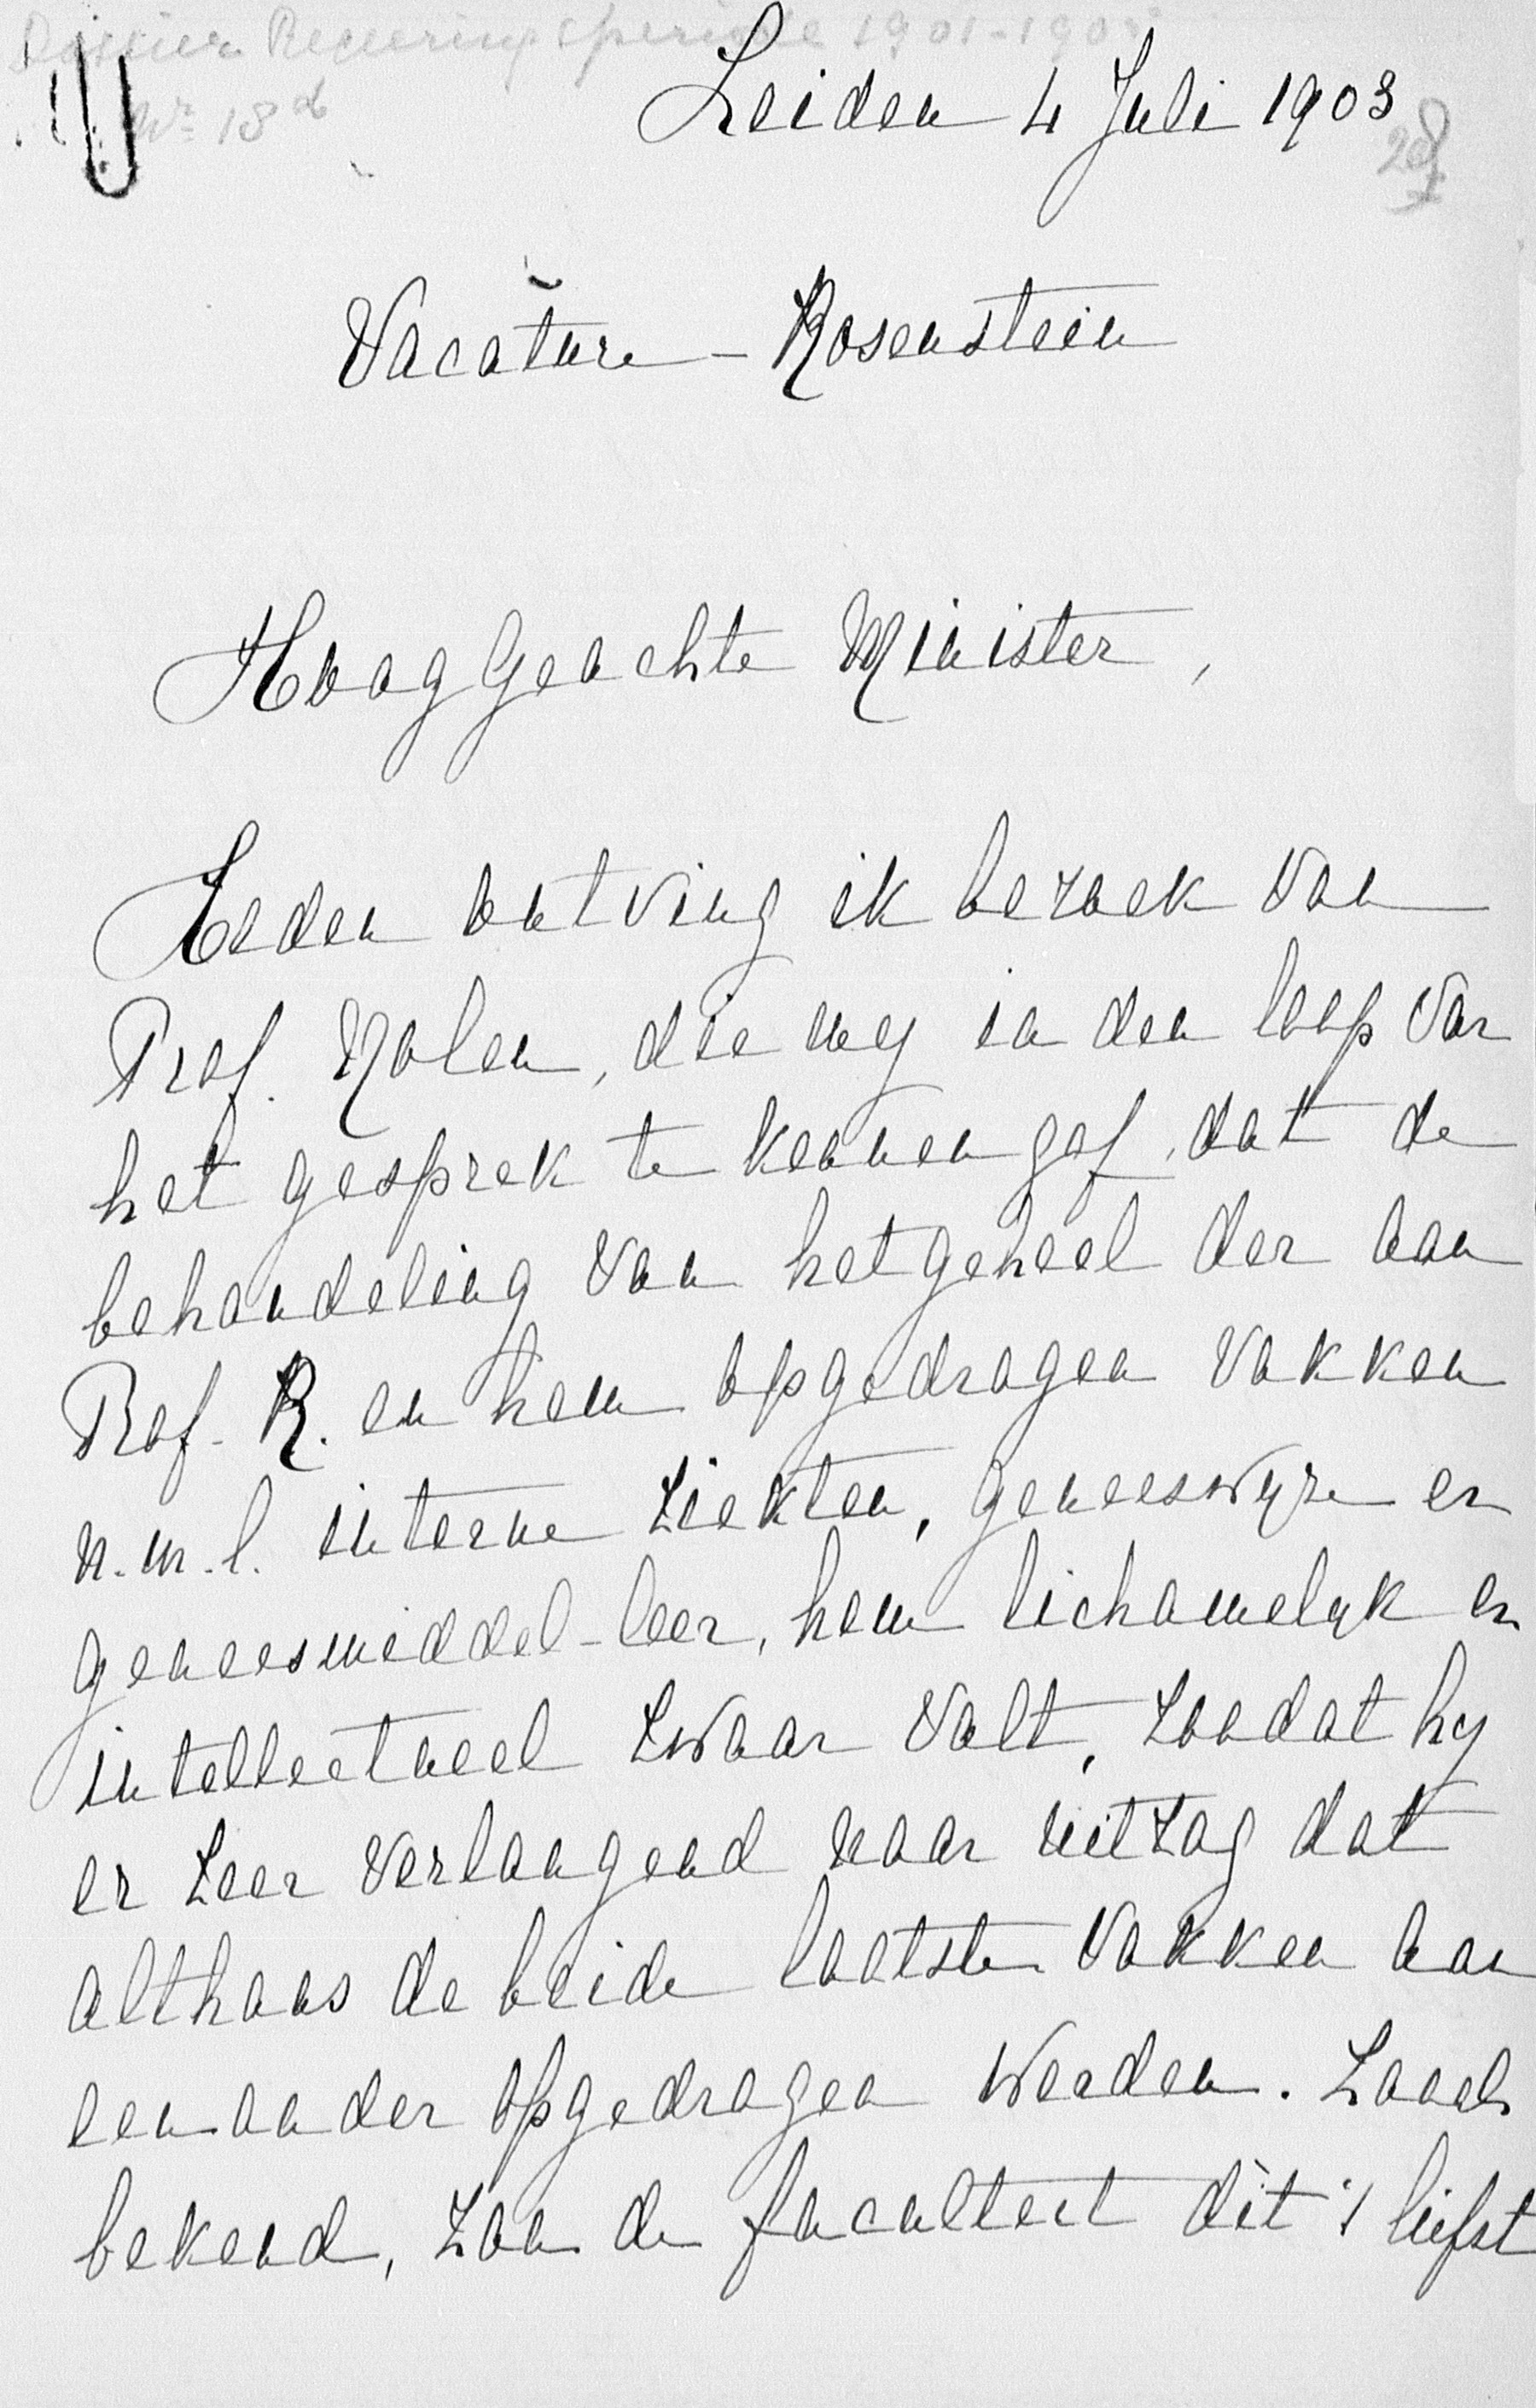 Dossier Regeeringsperiode 1901-190
Nr 18d
Leiden 4 Juli 1903
Vacature - Rosenstein
HoogGeachte Minister,
Heden ontving ik bezoek van
Prof. Nolen, die my in den loop van
het gesprek te kennen gaf, dat de
behandeling van het geheel der aan
Prof. R. en hem opgedragen vakken
n.m.l. interne ziekten, geneeswyze en
geneesmiddel-leer, hem lichamelyk en
intellectueel zwaar valt, zoodat hy
er zeer verlangend naar uitzag dat
althans de beide laatste vakken aan
een ander opgedragen werden. Zooals
bekend, zou de faculteit dit 't liefst